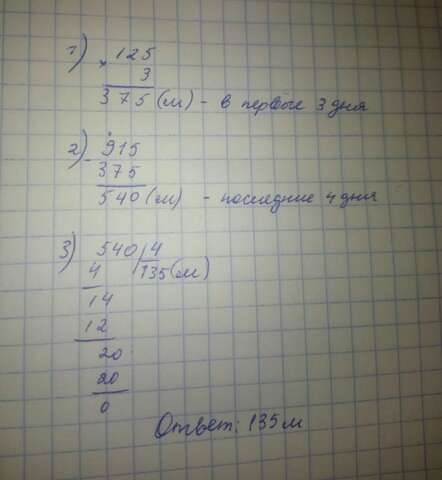 1) 125
× 3
375 (м) - в первые 3 дня
2) - 915
375
540 (м) - последние 4 дня
3) 540 | 4
4 135 (м)
14
12
20
20
0
Ответ: 135 м